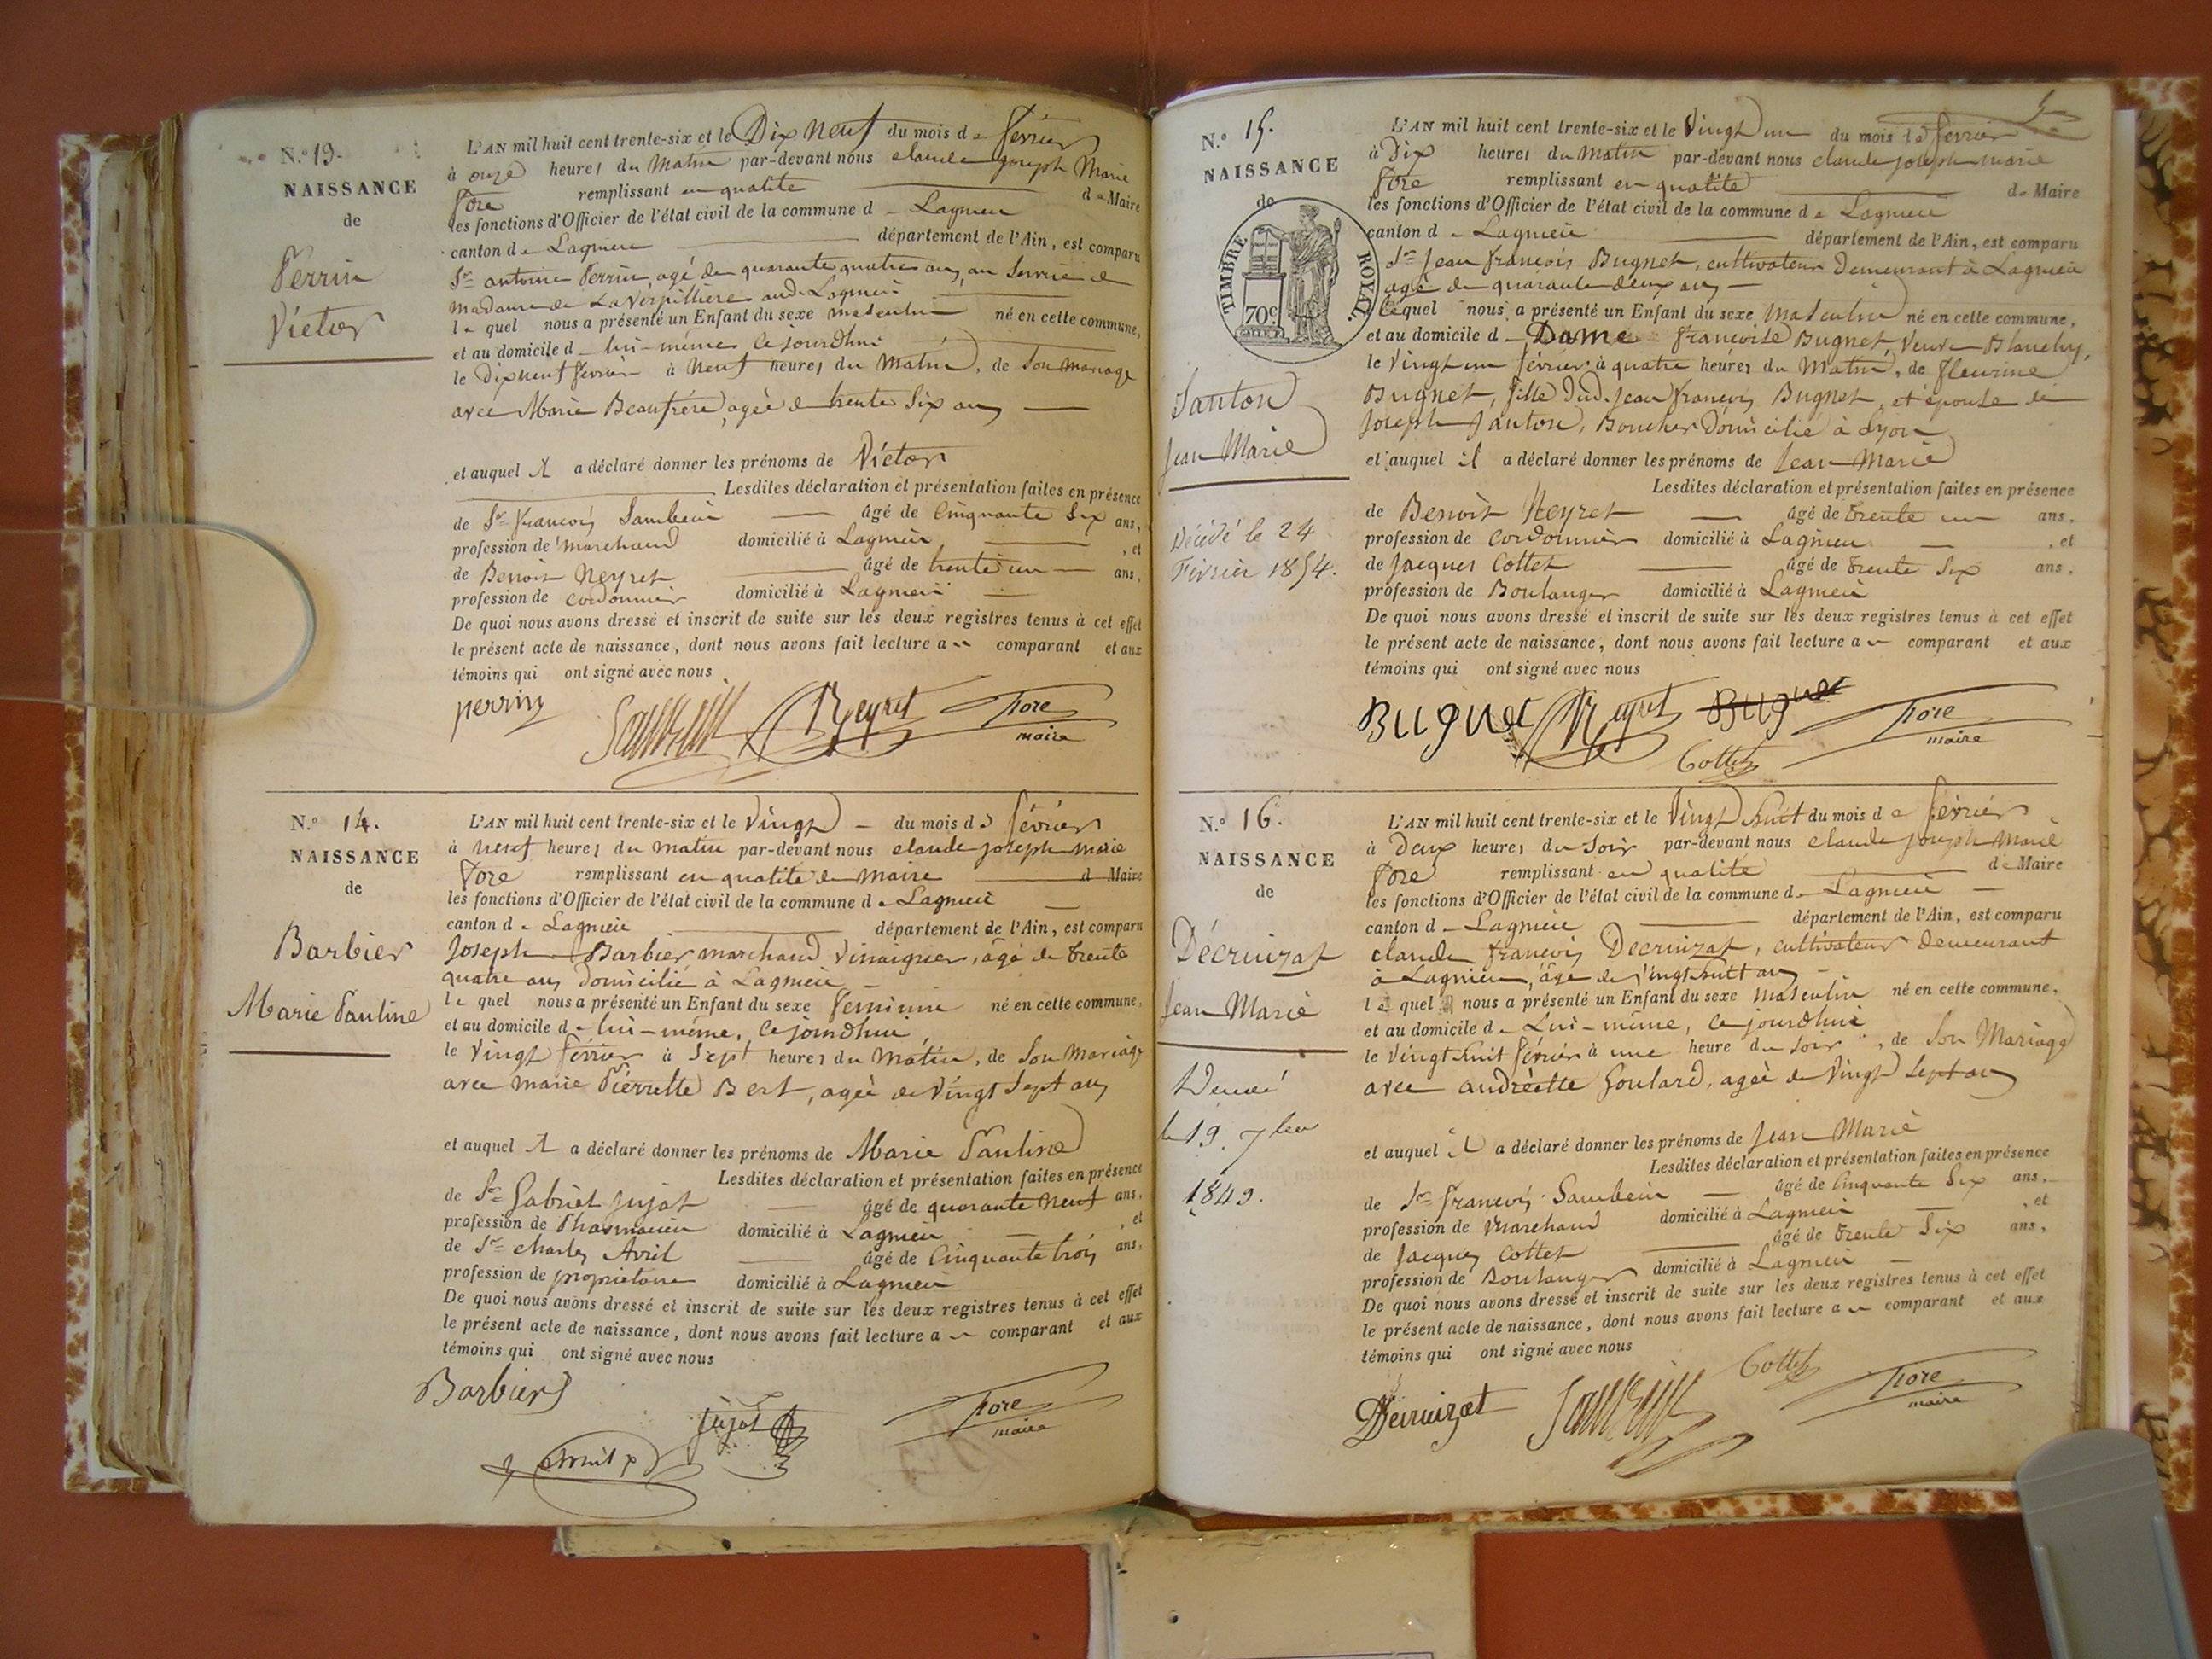 N.o 13.
NAISSANCE
de
Perrin
Victor
L'AN mil huit cent trente-six et le Dix neuf du mois de février
à onze heures du matin par-devant nous claude joseph Marie
fore remplissant en qualité de Maire
les fonctions d'Officier de l'état civil de la commune de Lagnieu
canton de Lagnieu département de l'Ain, est comparu
Sr antoine Perrin, agé de quarante quatre ans, au Service de
madame de La Verpillière aud. Lagnieu
lequel nous a présenté un Enfant du sexe masculin né en cette commune,
et au domicile de lui-même ce jourdhui
le dixneuf février à neuf heures du matin, de son mariage
avec Marie Beaufrére, agée de trente six ans
et auquel il a déclaré donner les prénoms de Victor
Lesdites déclaration et présentation faites en présence
de Sr francois Sambein âgé de Cinquante six ans,
profession de marchand domicilié à Lagnieu , et
de Benoit Neyret âgé de trente un ans,
profession de cordonnier domicilié à Lagnieu
De quoi nous avons dressé et inscrit de suite sur les deux registres tenus à cet effet
le présent acte de naissance, dont nous avons fait lecture au comparant et aux
témoins qui ont signé avec nous
perrin Neyret fore
maire
N.o 14.
NAISSANCE
de
Barbier
Marie Pauline
L'AN mil huit cent trente-six et le Vingt du mois de février
à neuf heures du matin par-devant nous claude joseph marie
fore remplissant en qualité de maire de Maire
les fonctions d'Officier de l'état civil de la commune de Lagnieu
canton de Lagnieu département de l'Ain, est comparu
Joseph Barbier marchand Vinaigrier, âgé de trente
quatre ans domicilié à Lagnieu
lequel nous a présenté un Enfant du sexe feminin né en cette commune,
et au domicile de lui-même, ce jourdhui
le Vingt février à Sept heures du matin, de Son Mariage
avec marie Pierrette Bert, agée de Vingt Sept ans
et auquel il a déclaré donner les prénoms de Marie Pauline
Lesdites déclaration et présentation faites en présence
de Sr Gabriel Jujat âgé de quarante neuf ans,
profession de Pharmacien domicilié à Lagnieu , et
de Sr charles Avril âgé de Cinquante trois ans,
profession de proprietaire domicilié à Lagnieu
De quoi nous avons dressé et inscrit de suite sur les deux registres tenus à cet effet
le présent acte de naissance, dont nous avons fait lecture au comparant et aux
témoins qui ont signé avec nous
Barbier
Jujat fore
maire
Avril
5
N.o 15.
NAISSANCE
de
TIMBRE ROYAL.
70c
Janton
Jean Marie
Décédé le 24
Février 1854.
L'AN mil huit cent trente-six et le Vingt un du mois de février
à Dix heures du matin par-devant nous claude joseph marie
fore remplissant en qualité de Maire
les fonctions d'Officier de l'état civil de la commune de Lagnieu
canton de Lagnieu département de l'Ain, est comparu
Sr Jean françois Bugnet, cultivateur demeurant à Lagnieu
agé de quarante deux ans
lequel nous a présenté un Enfant du sexe Masculin né en cette commune,
et au domicile de Dame françoise Bugnet, Veuve Blanchy,
le Vingt un février à quatre heures du Matin, de fleurine
Bugnet, fille dud. Jean françois Bugnet, et épouse de
Joseph Janton, Boucher domicilié à Lyon
et auquel il a déclaré donner les prénoms de Jean Marie
Lesdites déclaration et présentation faites en présence
de Benoit Neyret âgé de trente un ans.
profession de cordonnier domicilié à Lagnieu , et
de Jacques Cottet âgé de trente Six ans.
profession de Boulanger domicilié à Lagnieu
De quoi nous avons dressé et inscrit de suite sur les deux registres tenus à cet effet
le présent acte de naissance, dont nous avons fait lecture au comparant et aux
témoins qui ont signé avec nous
Bugnet Neyret Bugnet fore
maire
Cottet
N.o 16.
NAISSANCE
de
Décruizat
Jean Marie
le 19. 7bre
1849.
L'AN mil huit cent trente-six et le Vingt huit du mois de février
à Deux heures du Soir par-devant nous claude joseph marie
fore remplissant en qualité de Maire
les fonctions d'Officier de l'état civil de la commune de Lagnieu
canton de Lagnieu département de l'Ain, est comparu
claude françois Decruizat, cultivateur demeurant
à Lagnieu, âgé de Vingt huit ans
lequel nous a présenté un Enfant du sexe masculin né en cette commune,
et au domicile de Lui-même, ce jourdhui
le Vingt huit février à une heure du soir, de Son Mariage
avec andréette Goulard, agée de Vingt Sept ans
et auquel il a déclaré donner les prénoms de Jean Marie
Lesdites déclaration et présentation faites en présence
de Sr francois Sambein âgé de Cinquante Six ans,
profession de Marchand domicilié à Lagnieu , et
de Jacques Cottet âgé de trente Six ans,
profession de Boulanger domicilié à Lagnieu
De quoi nous avons dressé et inscrit de suite sur les deux registres tenus à cet effet
le présent acte de naissance, dont nous avons fait lecture au comparant et aux
témoins qui ont signé avec nous
Cottet
Decruizat fore
maire